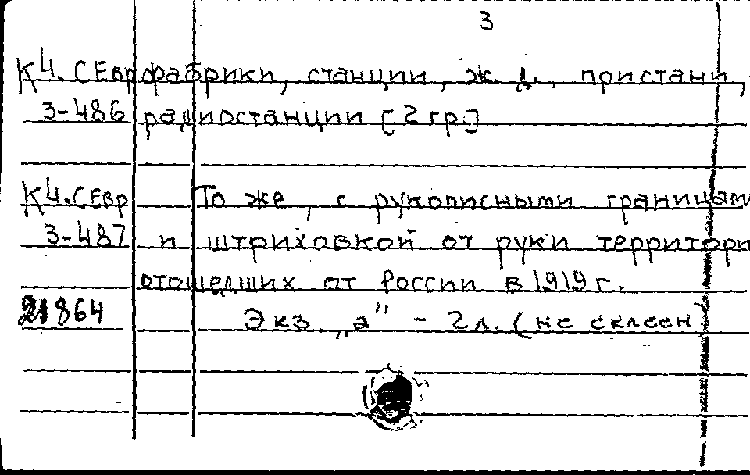 3
К4.СЕвр фабрики, станции, ж. д., пристани,
3-486 радиостанции [2 гр.]
К4.СЕвр То же, с рукописными границам
3-487 и штриховкой от руки территори
отошедших от России в 1919 г.
21864 Экз. „а" - 2 л. (не склеен)